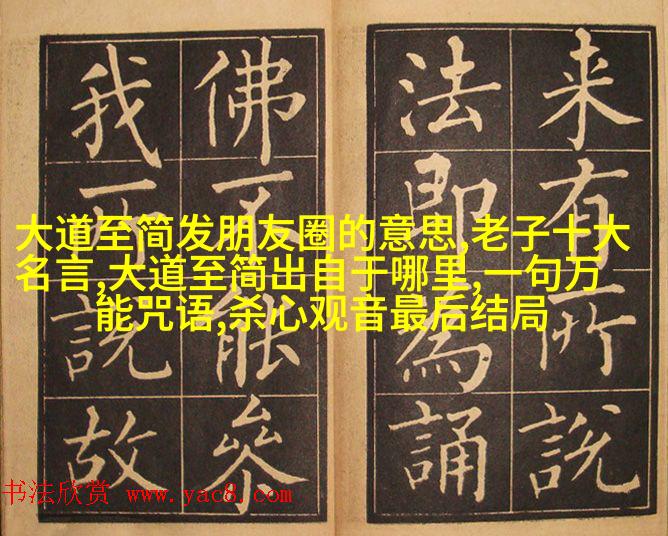 来有所説
法即為誦
佛不能叅
我所説故
大道至简发朋友圈的意思,老子十大
名言,大道至简出自于哪里,一句万
能咒语,杀心观音最后结局
书法欣赏 www.yac8.com